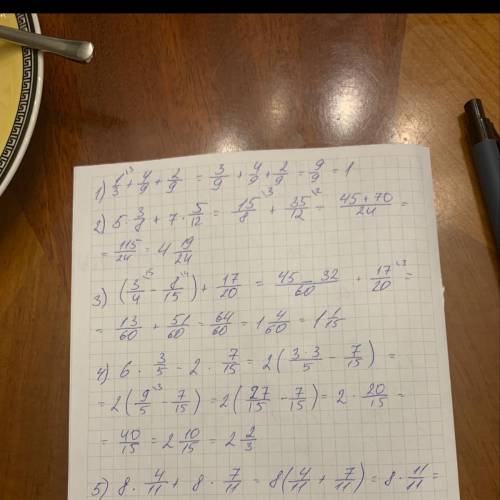 1) 1/3^{\3} + 4/9 + 2/9 = 3/9 + 4/9 + 2/9 = 9/9 = 1
2) 5 · 3/8 + 7 · 5/12 = 15/8^{\3} + 35/12^{\2} = (45 + 70)/24 =
= 115/24 = 4 19/24
3) (3/4^{\15} - 8/15^{\4}) + 17/20 = (45 - 32)/60 + 17/20^{\3} =
= 13/60 + 51/60 = 64/60 = 1 4/60 = 1 1/15
4) 6 · 3/5 - 2 · 7/15 = 2(3·3/5 - 7/15) =
= 2(9/5^{\3} - 7/15) = 2(27/15 - 7/15) = 2 · 20/15 =
= 40/15 = 2 10/15 = 2 2/3
5) 8 · 4/11 + 8 · 7/11 = 8(4/11 + 7/11) = 8 · 11/11 =